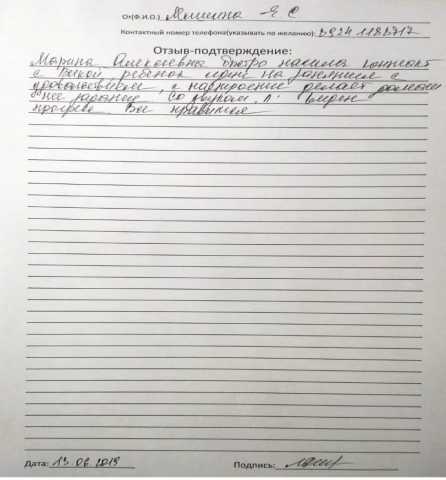 От(Ф.И.О.) Мишина Я С
Контактный номер телефона(указывать по желанию): 8924 1183717
Отзыв-подтверждение:
Марина Алексеевна быстро нашла контакт
с Викой, ребенок идет на занятия с
удовольствием, с настроением делает домаш
нее задание со звуком "Л" виден
прогресс. Все нравится
Дата: 13.06.2019
Подпись: